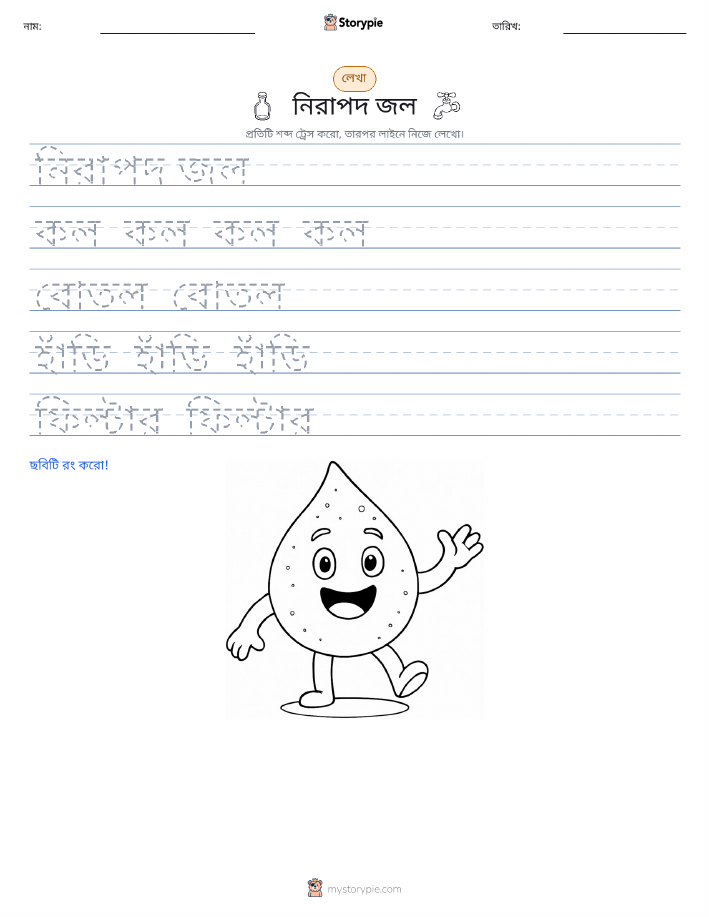 নাম:
Storypie
তারিখ:
লেখা
নিরাপদ জল
প্রতিটি শব্দ ট্রেস করো, তারপর লাইনে নিজে লেখো।
নিরাপদ জল
কল কল কল কল
বোতল বোতল
হাঁড়ি হাঁড়ি হাঁড়ি
ফিল্টার ফিল্টার
ছবিটি রং করো!
mystorypie.com